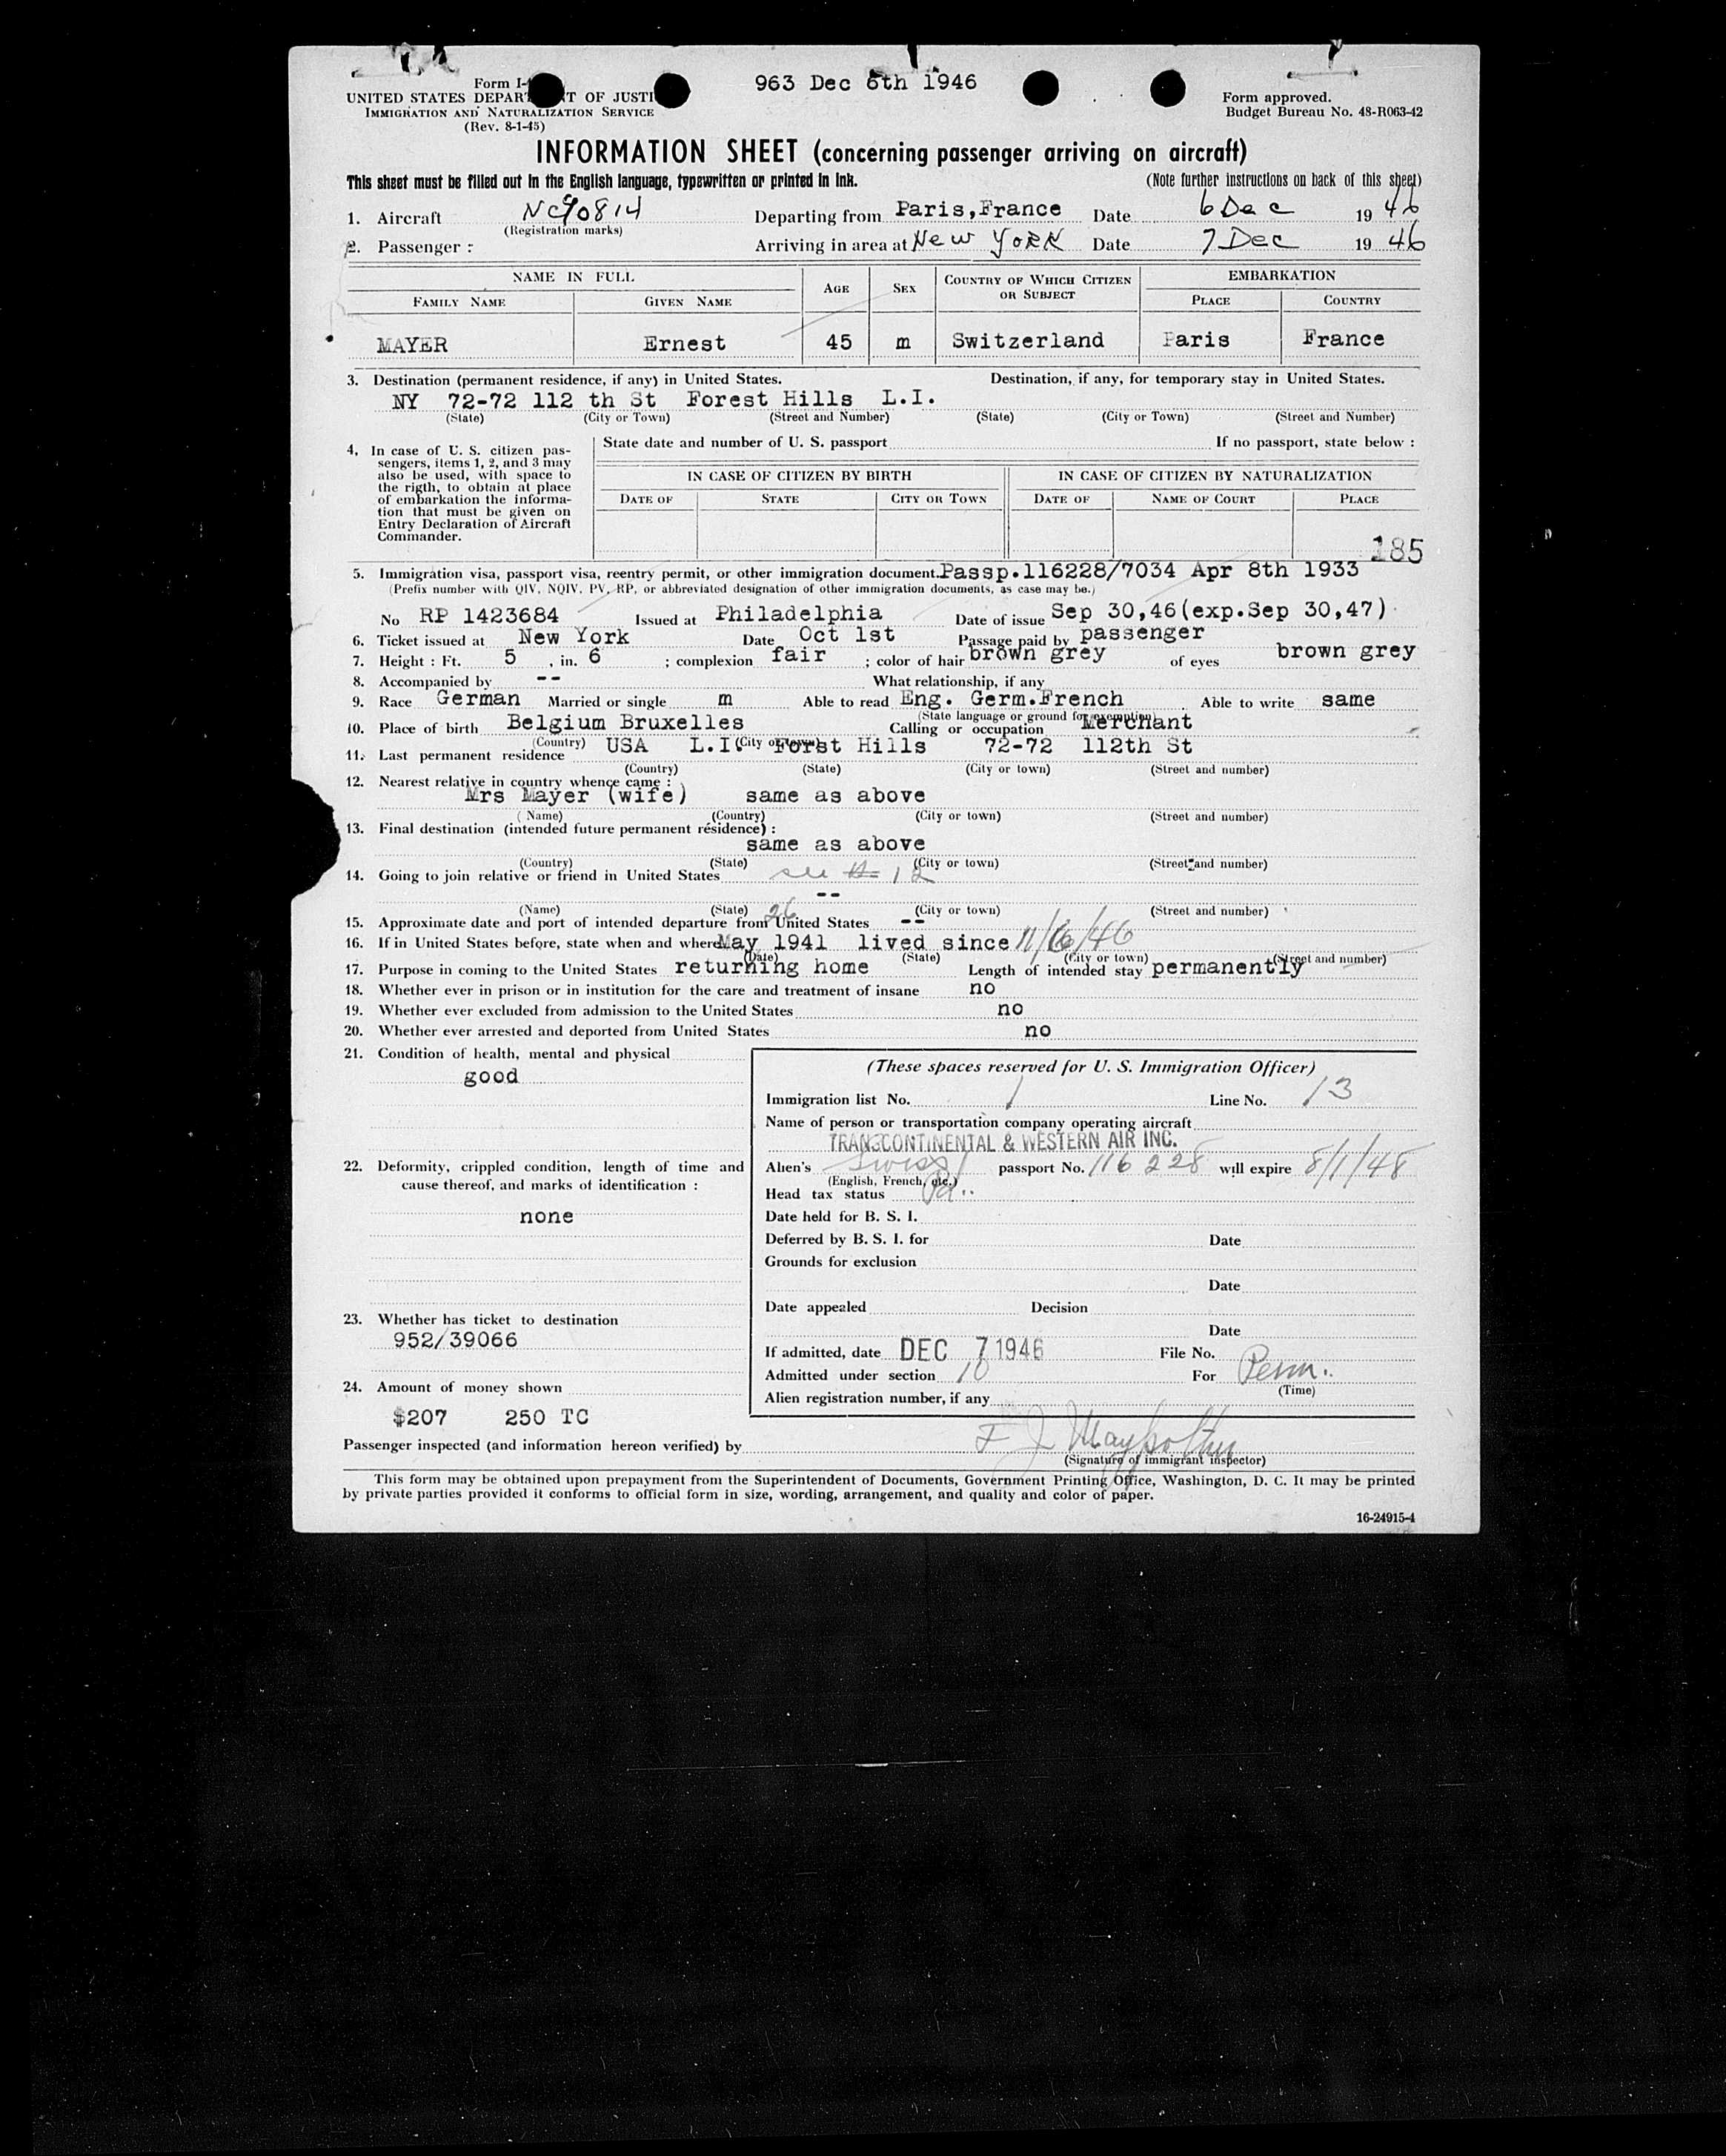 963 Dec 6th 1946
Form I-
UNITED STATES DEPAR T OF JUSTI
IMMIGRATION AND NATURALIZATION SERVICE
(Rev. 8-1-45)
Form approved.
Budget Bureau No. 48-R063-42
INFORMATION SHEET (concerning passenger arriving on aircraft)
This sheet must be filled out in the English language, typewritten or printed in ink. (Note further instructions on back of this sheet)
1. Aircraft NC90814 Departing from Paris,France Date 6 Dec 19 46
(Registration marks)
2. Passenger : Arriving in area at New YORK Date 7 Dec 19 46
NAME IN FULL AGE SEX COUNTRY OF WHICH CITIZEN OR SUBJECT EMBARKATION
FAMILY NAME GIVEN NAME PLACE COUNTRY
MAYER Ernest 45 m Switzerland Paris France
3. Destination (permanent residence, if any) in United States. Destination, if any, for temporary stay in United States.
NY 72-72 112 th St Forest Hills L.I.
(State) (City or Town) (Street and Number) (State) (City or Town) (Street and Number)
4. In case of U. S. citizen pas-
sengers, items 1, 2, and 3 may
also be used, with space to
the rigth, to obtain at place
of embarkation the informa-
tion that must be given on
Entry Declaration of Aircraft
Commander.
State date and number of U. S. passport If no passport, state below :
IN CASE OF CITIZEN BY BIRTH IN CASE OF CITIZEN BY NATURALIZATION
DATE OF STATE CITY OR TOWN DATE OF NAME OF COURT PLACE
185
5. Immigration visa, passport visa, reentry permit, or other immigration document. Passp.116228/7034 Apr 8th 1933
(Prefix number with QIV, NQIV, PV, RP, or abbreviated designation of other immigration documents, as case may be.)
No RP 1423684 Issued at Philadelphia Date of issue Sep 30,46(exp.Sep 30,47)
6. Ticket issued at New York Date Oct 1st Passage paid by passenger
7. Height : Ft. 5 , in. 6 ; complexion fair ; color of hair brown grey of eyes brown grey
8. Accompanied by -- What relationship, if any
9. Race German Married or single m Able to read Eng. Germ.French Able to write same
(State language or ground for exemption)
10. Place of birth Belgium Bruxelles Calling or occupation Merchant
(Country) (City or town)
11. Last permanent residence USA L.I. Forst Hills 72-72 112th St
(Country) (State) (City or town) (Street and number)
12. Nearest relative in country whence came :
Mrs Mayer (wife) same as above
(Name) (Country) (City or town) (Street and number)
13. Final destination (intended future permanent résidence) :
same as above
(Country) (State) (City or town) (Street and number)
14. Going to join relative or friend in United States see # 12
--
(Name) (State) (City or town) (Street and number)
15. Approximate date and port of intended departure from United States --
26
16. If in United States before, state when and where May 1941 lived since 11/6/46
(Date) (State) (City or town) (Street and number)
17. Purpose in coming to the United States returning home Length of intended stay permanently
18. Whether ever in prison or in institution for the care and treatment of insane no
19. Whether ever excluded from admission to the United States no
20. Whether ever arrested and deported from United States no
21. Condition of health, mental and physical
good
22. Deformity, crippled condition, length of time and
cause thereof, and marks of identification :
none
23. Whether has ticket to destination
952/39066
24. Amount of money shown
$207 250 TC
(These spaces reserved for U. S. Immigration Officer)
Immigration list No. 1 Line No. 13
Name of person or transportation company operating aircraft
TRANSCONTINENTAL & WESTERN AIR INC.
Alien's Swiss passport No. 116228 will expire 8/1/48
(English, French, etc.)
Head tax status Pd.
Date held for B. S. I.
Deferred by B. S. I. for Date
Grounds for exclusion
Date
Date appealed Decision
Date
If admitted, date DEC 7 1946 File No.
Admitted under section 10 For Perm.
(Time)
Alien registration number, if any
Passenger inspected (and information hereon verified) by F J
(Signature of immigrant inspector)
This form may be obtained upon prepayment from the Superintendent of Documents, Government Printing Office, Washington, D. C. It may be printed
by private parties provided it conforms to official form in size, wording, arrangement, and quality and color of paper.
16-24915-4